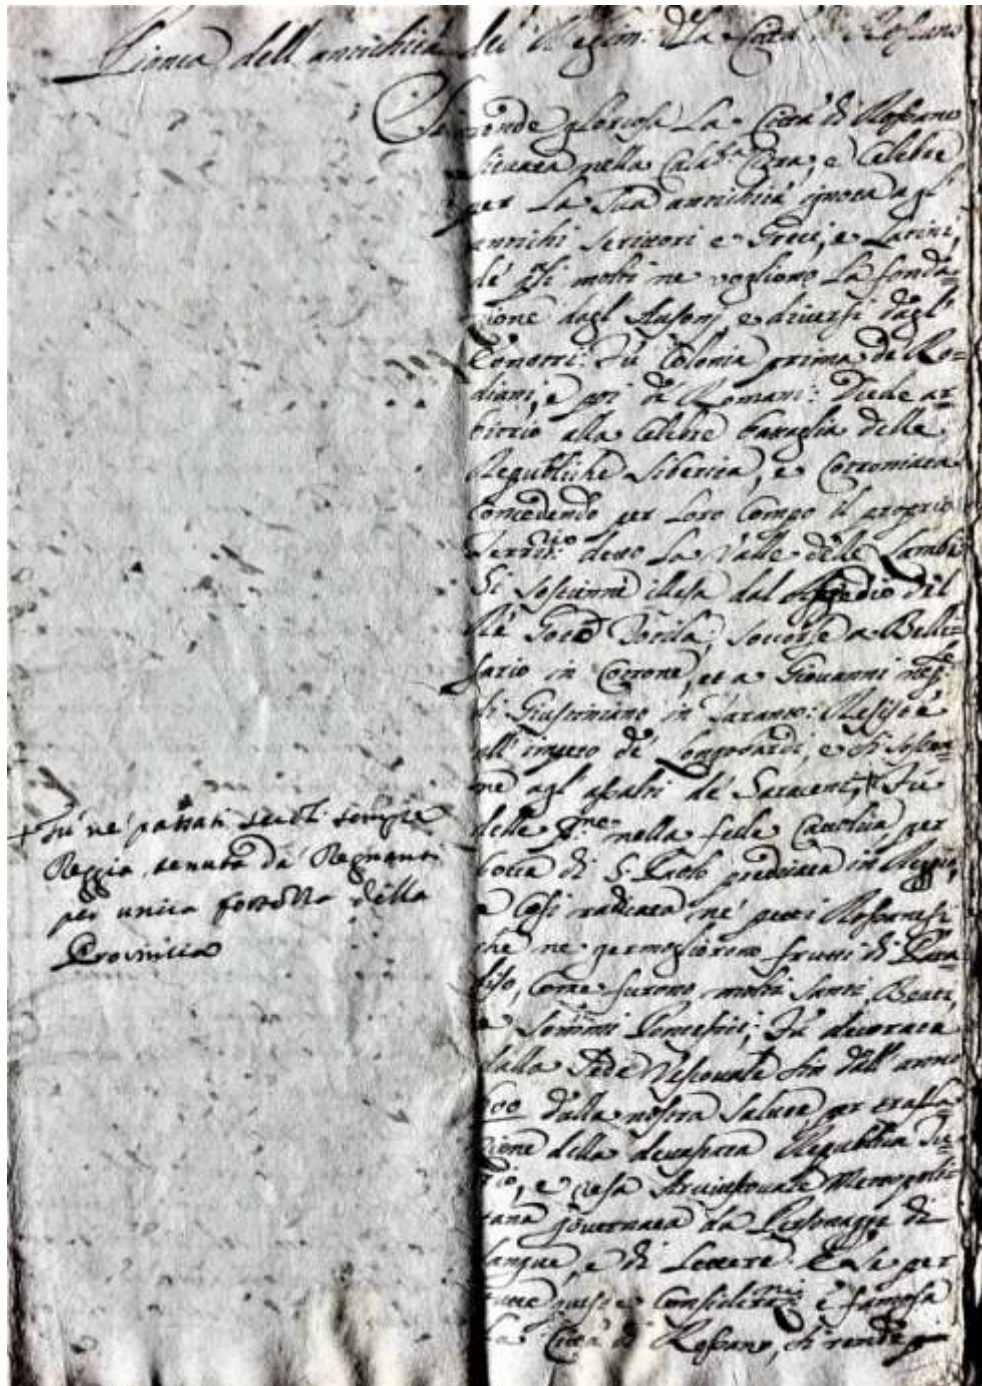 dell'antichità del Regim: della Città di Rossano
Si rende gloriosa La Città di Rossano
situata nella Calab.ª Citra, e Celebre
per La Sua antichità ignota agl'
antichi Scrittori e Greci, e Latini,
de q.li molti ne vogliono La fonda=
zione dagl'Ausonj e diversi dagl'
Enotri: Fù Colonia prima de Ro=
diani, e poi de Romani: Diede ar=
bitrio alla Celebre battaglia delle
Republiche Siberita, e Cotroniata
Concedendo per Loro Campo il proprio
Territ.io detto La Valle delle
Si sostenne illesa dal assedio del
Rè Goto Totila; soccorse a Belli=
sario in Cotrone, et a Giovanni
di Giustiniano in Taranto: Resistè
all'impeto de' Longobardi, e si sosten=
ne agl'assalti de' Saraceni, + Fù
delle p.me nella fede Cattolica, per
bocca di S. Paolo predicata in Reggio,
e Così radicata ne' petti Rossanesi
che ne germogliorono frutti di Para=
diso, Come furono molti Santi, Beati,
e Sommi Pontefici; Fù decorata
dalla Sede Vescovale sin dall'anno
600 dalla nostra Salute per trasla=
zione della Republica Tu=
rio, e resa Arcivescovale Metropoli=
tana governata da Personaggi di
Sangue, e di Lettere. E se per
tutte queste Considerat.ni è famosa
La Città di Rossano, si rende
+ Fù ne' passati secoli sempre
Reggia, tenuta da Regnanti
per unica fortezza della
Provincia